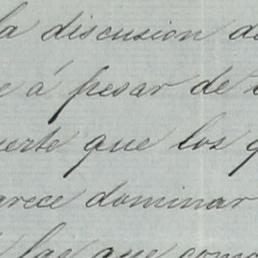 la discusion de
e á pesar de
uerto que los q
arece dominar
las que como